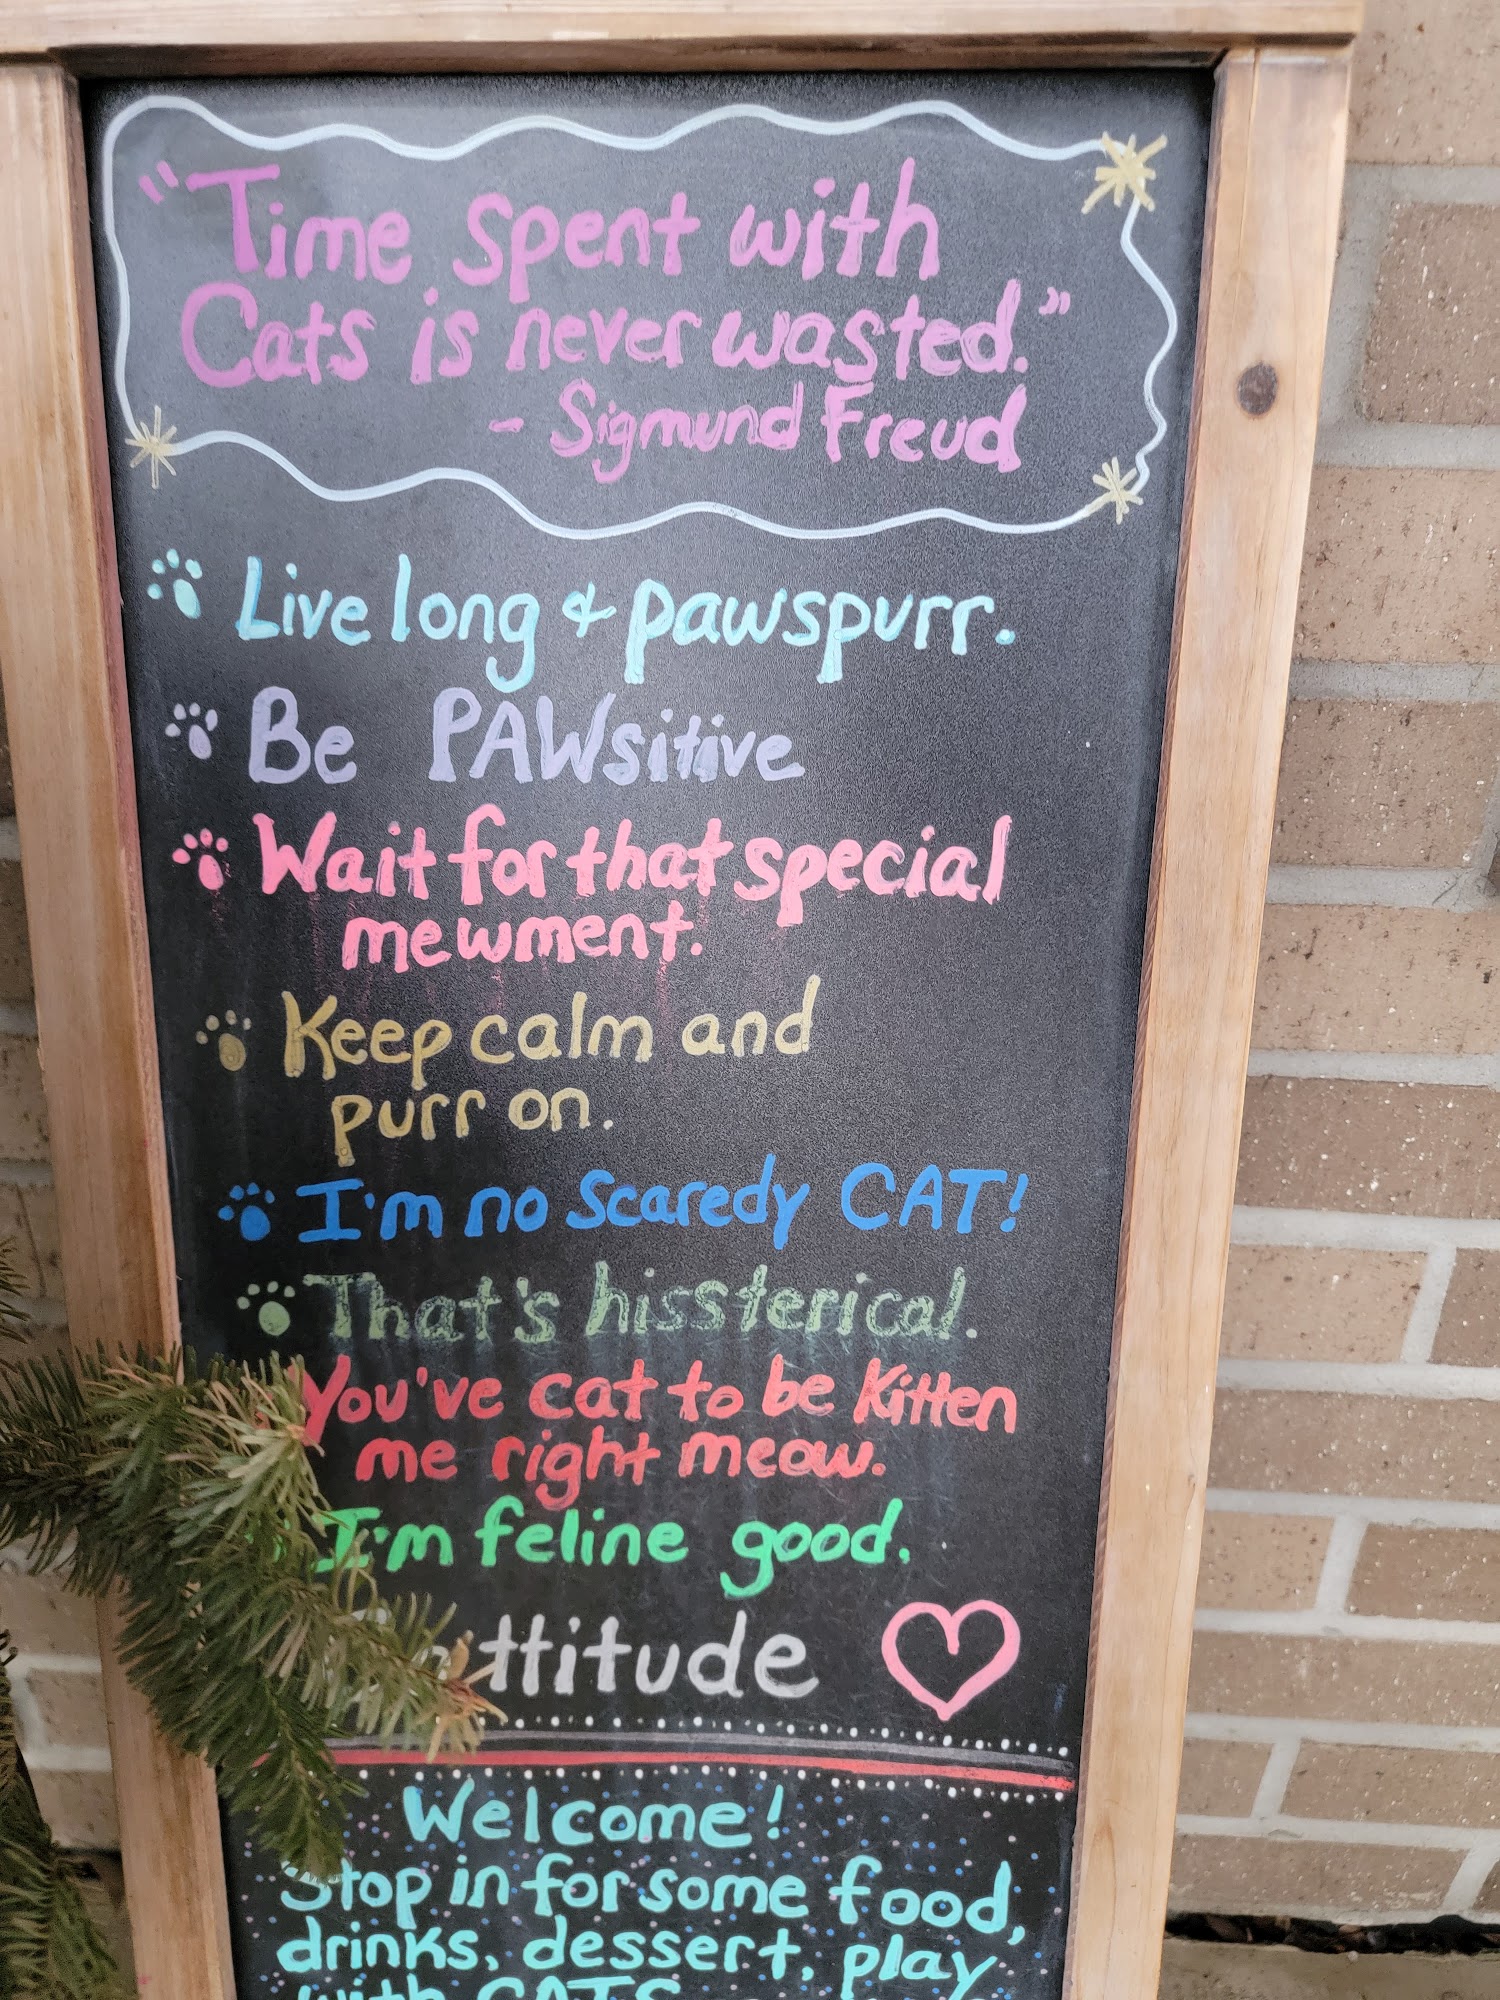 "Time spent with
Cats is never wasted."
- Sigmund Freud
Live long & pawspurr.
Be PAWsitive
Wait for that special
mewment.
Keep calm and
purr on.
I'm no Scaredy CAT!
That's hissterical.
You've cat to be Kitten
me right meow.
I'm feline good.
Cattitude
Welcome!
Stop in for some food,
drinks, dessert, play
with CATS